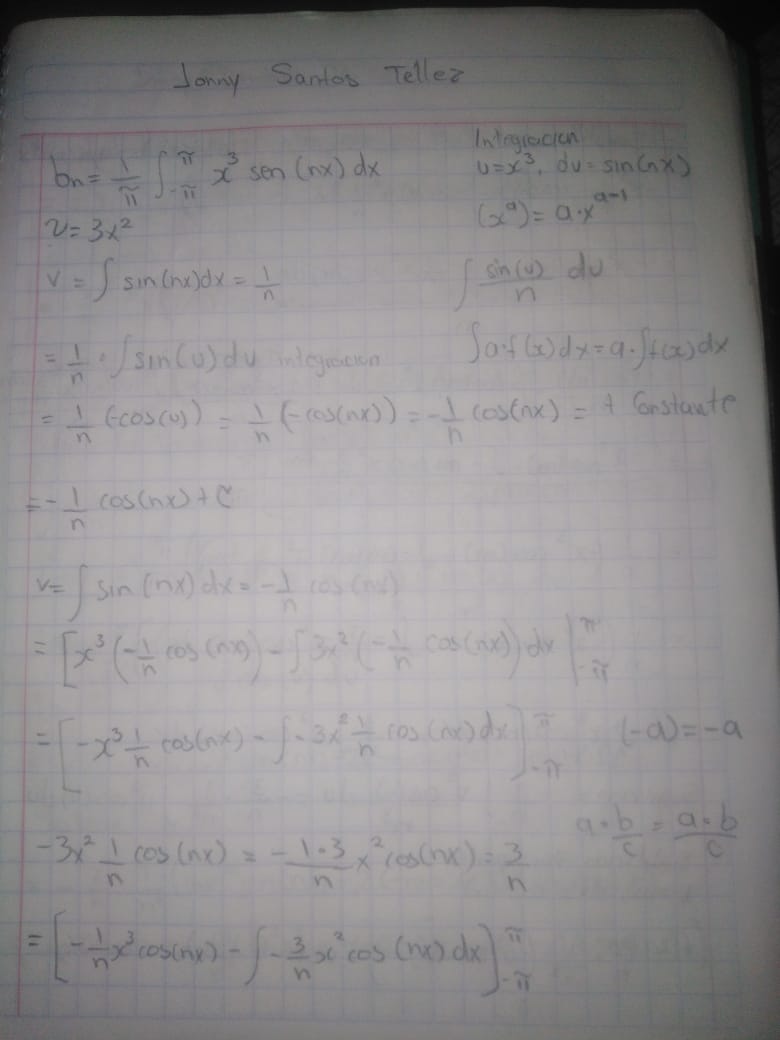 Jonny Santos Tellez
bn = 1/π ∫_-π^π x³ sen (nx) dx
Integracion
u=x³, du=sin(nx)
(x^a) = a·x^(a-1)
v = 3x²
v = ∫ sin(nx)dx = 1/n
∫ sin(u)/n du
= 1/n · ∫ sin(u) du integracion
∫a·f(x)dx=a·∫f(x)dx
= 1/n (-cos(u)) = 1/n (-cos(nx)) = -1/n cos(nx) = + Constante
= -1/n cos(nx) + C
v= ∫ sin (nx) dx = -1/n cos(nx)
= [x³ (-1/n cos (nx)) - ∫ 3x² (-1/n cos(nx)) dx |_-π^π
= [-x³ 1/n cos(nx) - ∫ -3x² 1/n cos(nx) dx]_-π^π
(-a) = -a
a·b/c = a·b/c
-3x² 1/n cos(nx) = -1·3/n x² cos(nx) = 3/n
= [-1/n x³ cos(nx) - ∫ -3/n x² cos (nx) dx]_-π^π